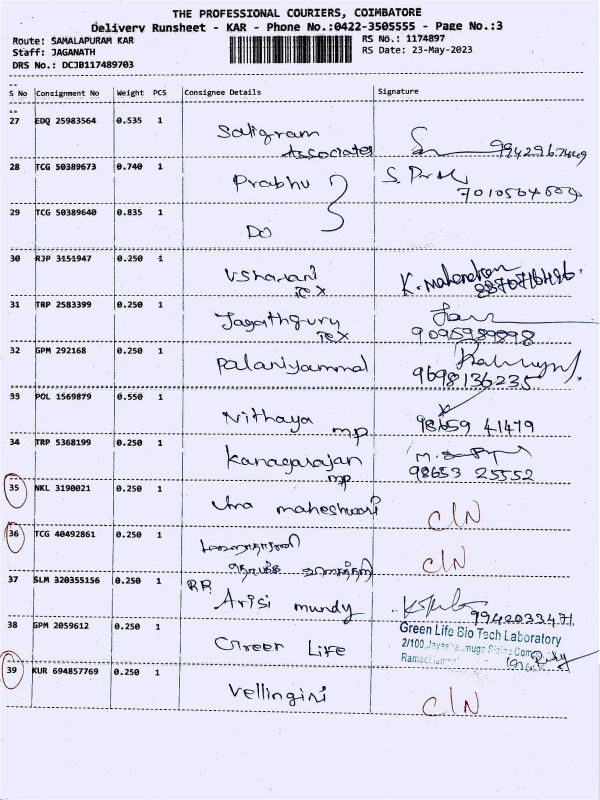 THE PROFESSIONAL COURIERS, COIMBATORE
Delivery Runsheet - KAR - Phone No.:0422-3505555 - Page No.:3
Route: SAMALAPURAM KAR
RS No.: 1174897
Staff: JAGANATH
RS Date: 23-May-2023
DRS No.: DCJB117489703
S No Consignment No Weight PCS Consignee Details Signature
27 EDQ 25983564 0.535 1 Saligram
Associates
28 TCG 50389673 0.740 1 Prabhu
29 TCG 50389640 0.835 1
Do
30 RJP 3151947 0.250 1 K. Mahendran
Tex 8870716486
31 TRP 2583399 0.250 1 Jagathguru
Tex 9095989898
32 GPM 292168 0.250 1 Palaniyammal
9698136235
33 POL 1569879 0.550 1
Nithaya mp 98659 41479
34 TRP 5368199 0.250 1 Kanagarajan
mp 98653 25552
35 NKL 3190021 0.250 1 Uma maheshwari C/N
36 TCG 40492861 0.250 1 C/N
37 SLM 320355156 0.250 1 RR
Arisi mundy 9942033471
38 GPM 2059612 0.250 1 Green Life
Green Life Bio Tech Laboratory
2/100,
39 KUR 694857769 0.250 1 Vellingiri C/N